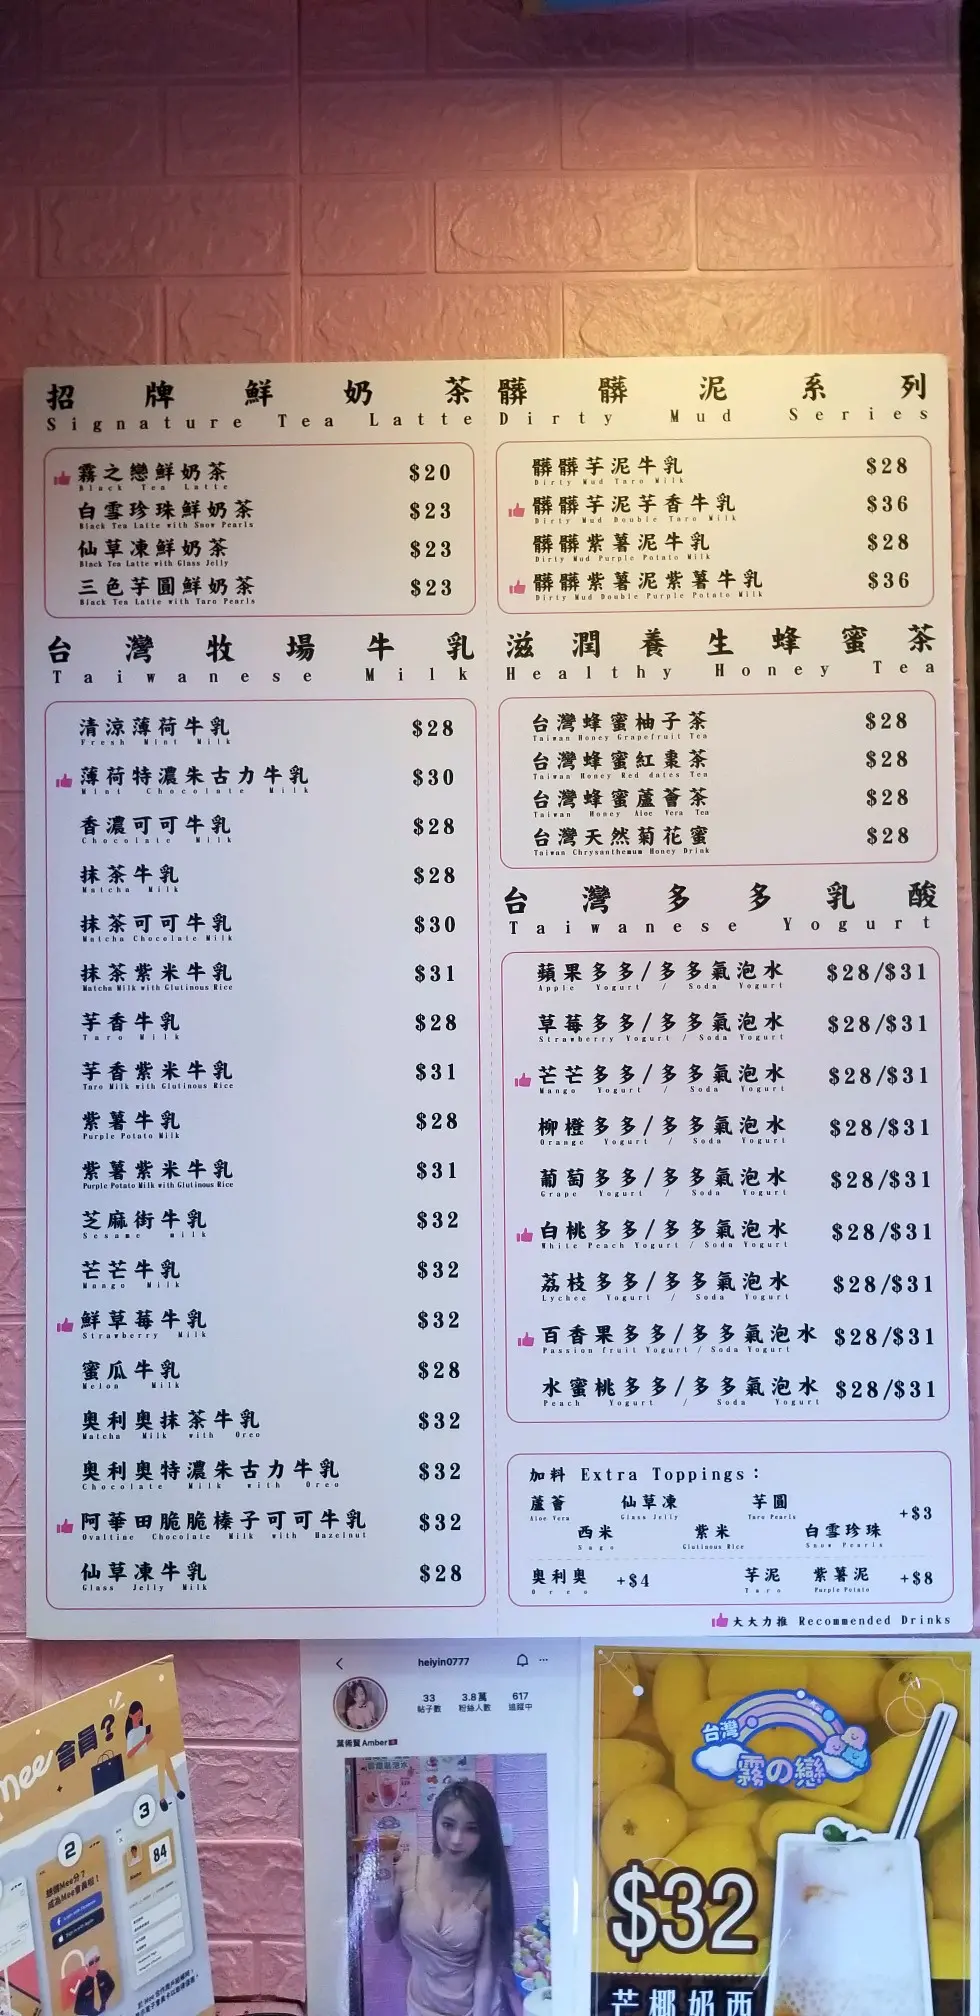 招牌鮮奶茶
Signature Tea Latte
霧之戀鮮奶茶 $20
Black Tea Latte
白雪珍珠鮮奶茶 $23
Black Tea Latte with Snow Pearls
仙草凍鮮奶茶 $23
Black Tea Latte with Glass Jelly
三色芋圓鮮奶茶 $23
Black Tea Latte with Taro Pearls
台灣牧場牛乳
Taiwanese Milk
清涼薄荷牛乳 $28
Fresh Mint Milk
薄荷特濃朱古力牛乳 $30
Mint Chocolate Milk
香濃可可牛乳 $28
Chocolate Milk
抹茶牛乳 $28
Matcha Milk
抹茶可可牛乳 $30
Matcha Chocolate Milk
抹茶紫米牛乳 $31
Matcha Milk with Glutinous Rice
芋香牛乳 $28
Taro Milk
芋香紫米牛乳 $31
Taro Milk with Glutinous Rice
紫薯牛乳 $28
Purple Potato Milk
紫薯紫米牛乳 $31
Purple Potato Milk with Glutinous Rice
芝麻街牛乳 $32
Sesame milk
芒芒牛乳 $32
Mango Milk
鮮草莓牛乳 $32
Strawberry Milk
蜜瓜牛乳 $28
Melon Milk
奧利奧抹茶牛乳 $32
Matcha Milk with Oreo
奧利奧特濃朱古力牛乳 $32
Chocolate Milk with Oreo
阿華田脆脆榛子可可牛乳 $32
Ovaltine Chocolate Milk with Hazelnut
仙草凍牛乳 $28
Glass Jelly Milk
髒髒泥系列
Dirty Mud Series
髒髒芋泥牛乳 $28
Dirty Mud Taro Milk
髒髒芋泥芋香牛乳 $36
Dirty Mud Double Taro Milk
髒髒紫薯泥牛乳 $28
Dirty Mud Purple Potato Milk
髒髒紫薯泥紫薯牛乳 $36
Dirty Mud Double Purple Potato Milk
滋潤養生蜂蜜茶
Healthy Honey Tea
台灣蜂蜜柚子茶 $28
Taiwan Honey Grapefruit Tea
台灣蜂蜜紅棗茶 $28
Taiwan Honey Red dates Tea
台灣蜂蜜蘆薈茶 $28
Taiwan Honey Aloe Vera Tea
台灣天然菊花蜜 $28
Taiwan Chrysanthemum Honey Drink
台灣多多乳酸
Taiwanese Yogurt
蘋果多多/多多氣泡水 $28/$31
Apple Yogurt / Soda Yogurt
草莓多多/多多氣泡水 $28/$31
Strawberry Yogurt / Soda Yogurt
芒芒多多/多多氣泡水 $28/$31
Mango Yogurt / Soda Yogurt
柳橙多多/多多氣泡水 $28/$31
Orange Yogurt / Soda Yogurt
葡萄多多/多多氣泡水 $28/$31
Grape Yogurt / Soda Yogurt
白桃多多/多多氣泡水 $28/$31
White Peach Yogurt / Soda Yogurt
荔枝多多/多多氣泡水 $28/$31
Lychee Yogurt / Soda Yogurt
百香果多多/多多氣泡水 $28/$31
Passion fruit Yogurt / Soda Yogurt
水蜜桃多多/多多氣泡水 $28/$31
Peach Yogurt / Soda Yogurt
加料 Extra Toppings:
蘆薈 仙草凍 芋圓 +$3
Aloe Vera Glass Jelly Taro Pearls
西米 紫米 白雪珍珠
Sago Glutinous Rice Snow Pearls
奧利奧 +$4 芋泥 紫薯泥 +$8
Oreo Taro Purple Potato
大大力推 Recommended Drinks
Mee會員?
2
3
84
成為Mee會員啦!
heiyin0777
33 3.8萬 617
帖子數 粉絲人數 追蹤中
Amber
台灣
霧の戀
$32
芒椰奶西